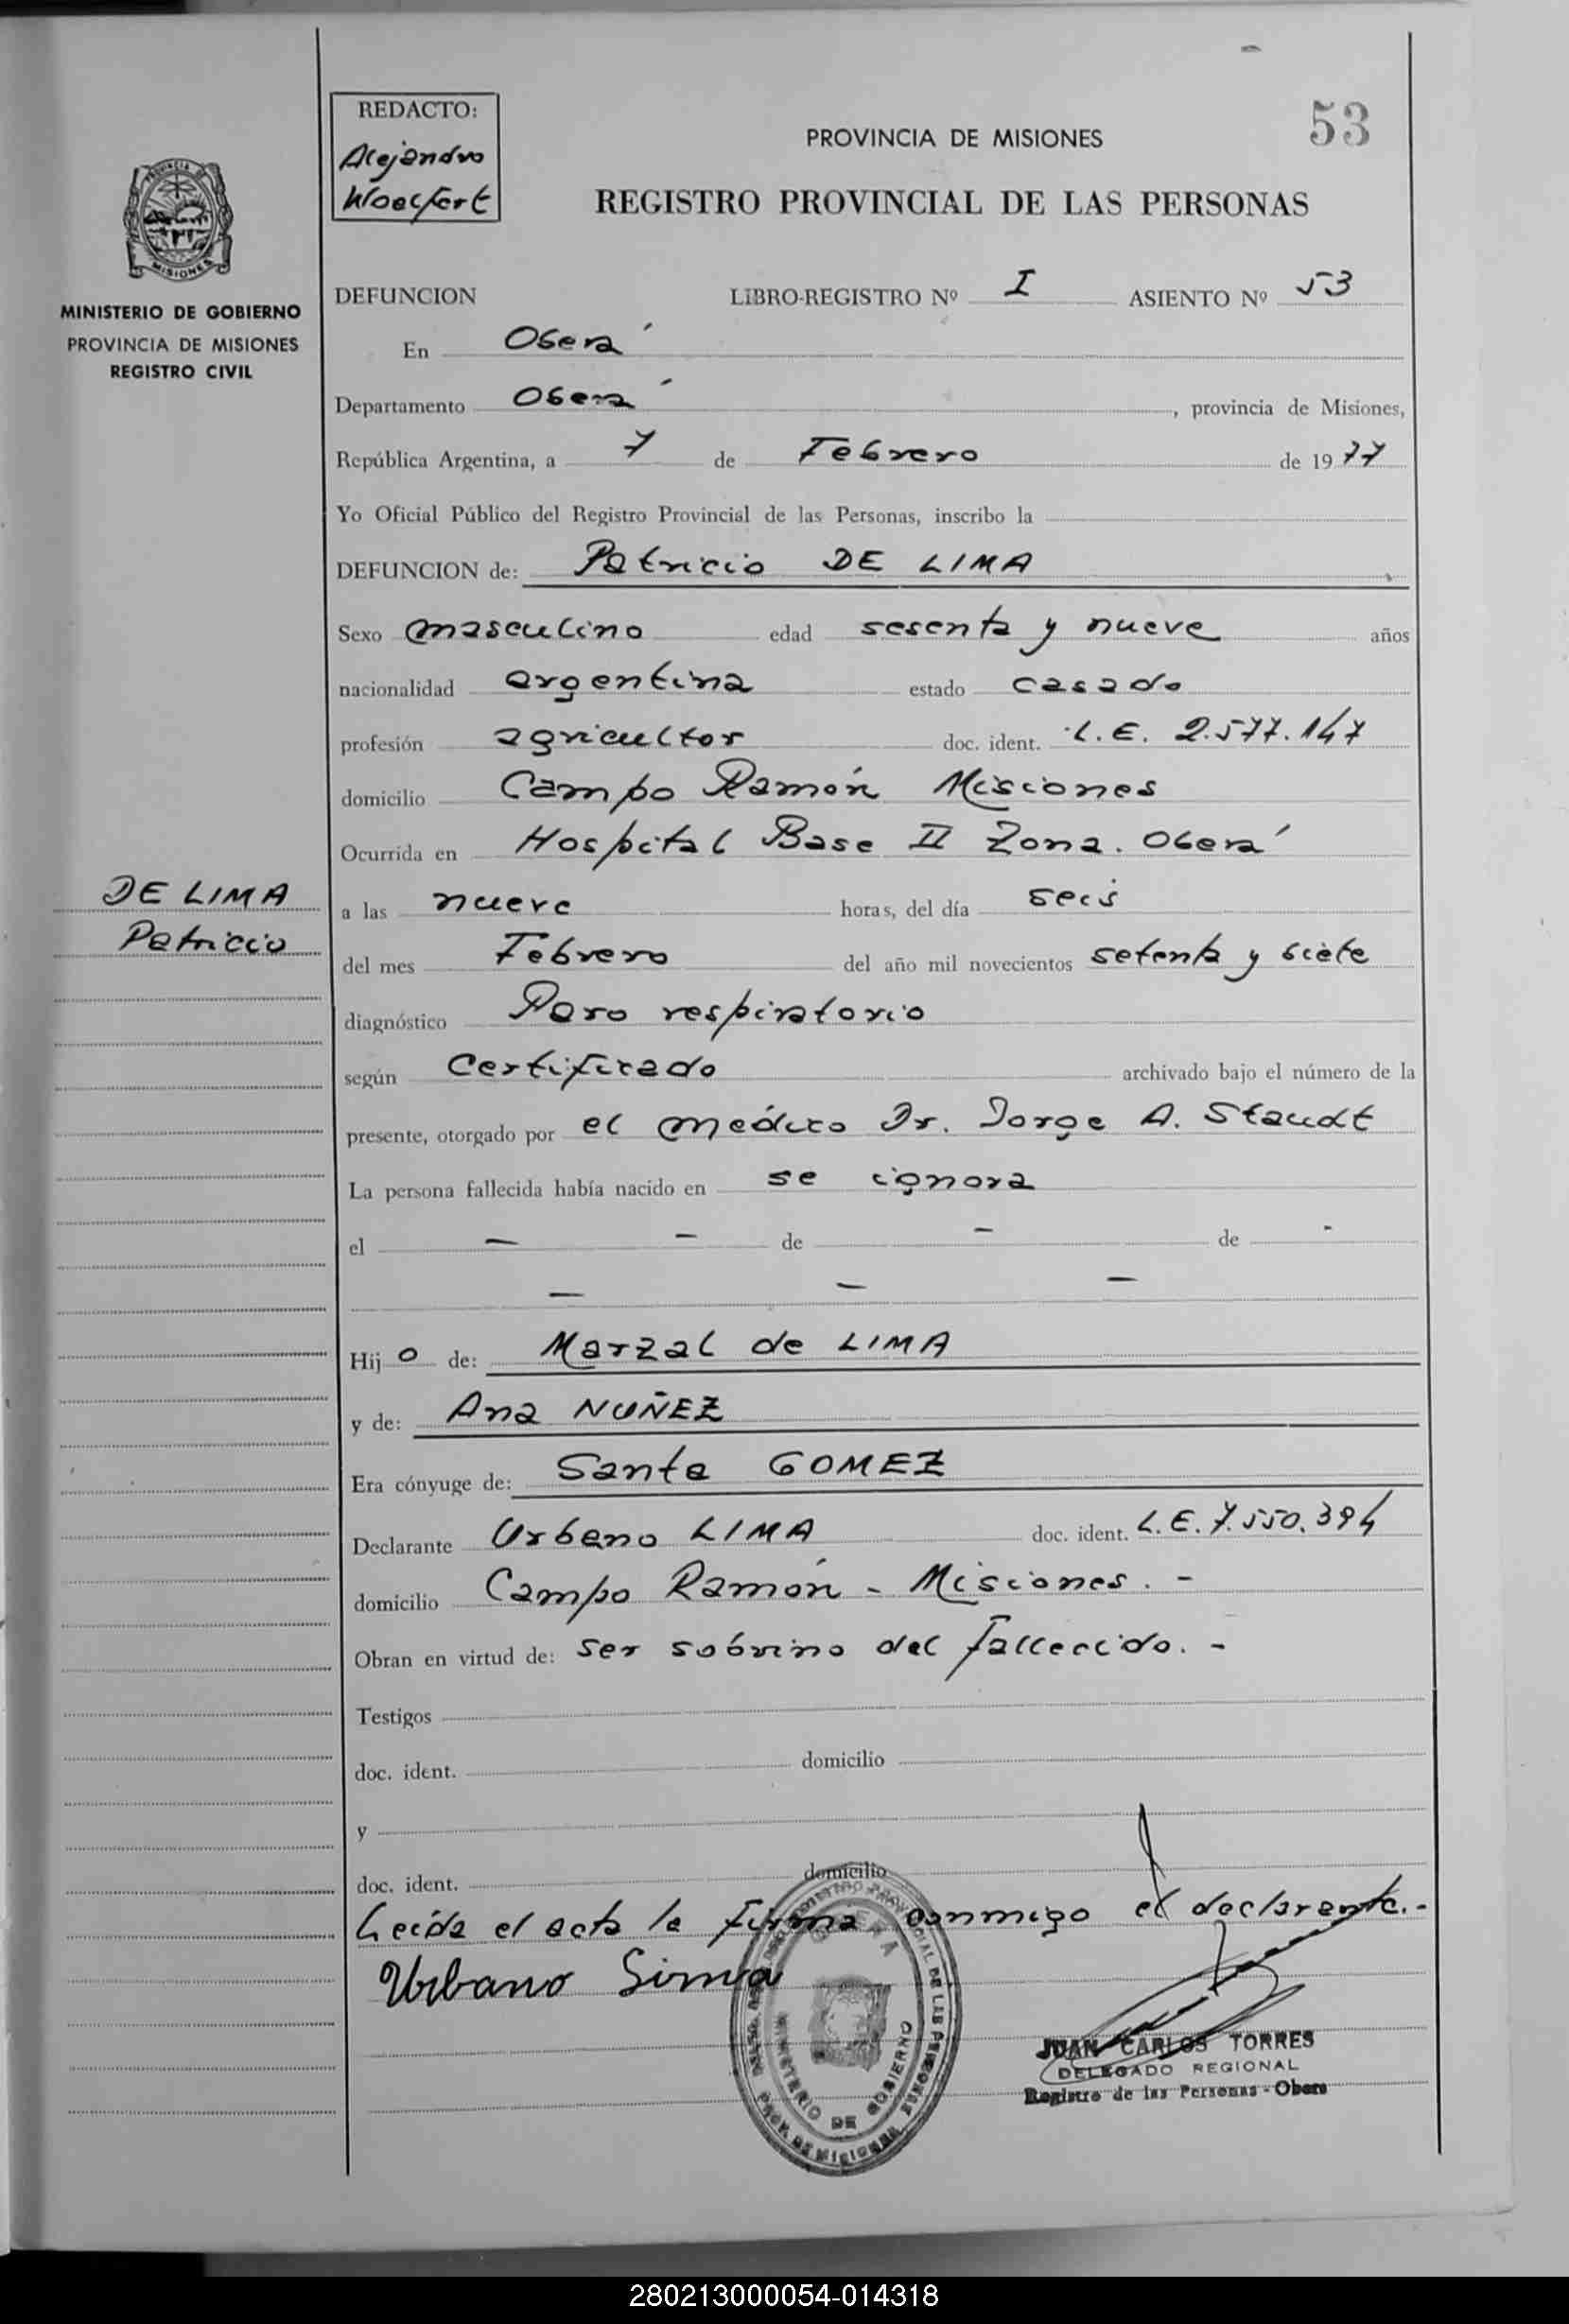 53
REDACTO:
Alejandro
Woelfert
PROVINCIA DE MISIONES
REGISTRO PROVINCIAL DE LAS PERSONAS
MISIONES
MINISTERIO DE GOBIERNO
PROVINCIA DE MISIONES
REGISTRO CIVIL
DEFUNCION LIBRO-REGISTRO Nº I ASIENTO Nº 53
En Oberá
Departamento Oberá, provincia de Misiones,
República Argentina, a 7 de Febrero de 1977
Yo Oficial Público del Registro Provincial de las Personas, inscribo la
DEFUNCION de: Patricio DE LIMA
Sexo masculino edad sesenta y nueve años
nacionalidad argentina estado casado
profesión agricultor doc. ident. L.E. 2.577.147
domicilio Campo Ramón Misiones
Ocurrida en Hospital Base II Zona. Oberá
DE LIMA
Patricio
a las nueve horas, del día seis
del mes Febrero del año mil novecientos setenta y siete
diagnóstico Paro respiratorio
según Certificado archivado bajo el número de la
presente, otorgado por el médico Dr. Jorge A. Staudt
La persona fallecida había nacido en se ignora
el — — de — de -
— — —
Hijo de: Marzal de LIMA
y de: Ana NUÑEZ
Era cónyuge de: Santa GOMEZ
Declarante Urbano LIMA doc. ident. L.E. 7.550.394
domicilio Campo Ramón - Misiones. -
Obran en virtud de: ser sobrino del fallecido. -
Testigos
doc. ident. domicilio
y
doc. ident. domicilio
Leída el acta la firma conmigo el declarante.-
Urbano Sima
JUAN CARLOS TORRES
DELEGADO REGIONAL
Registro de las Personas - Obera
MINISTERIO DE GOBIERNO
PROV. DE MISIONES
280213000054-014318